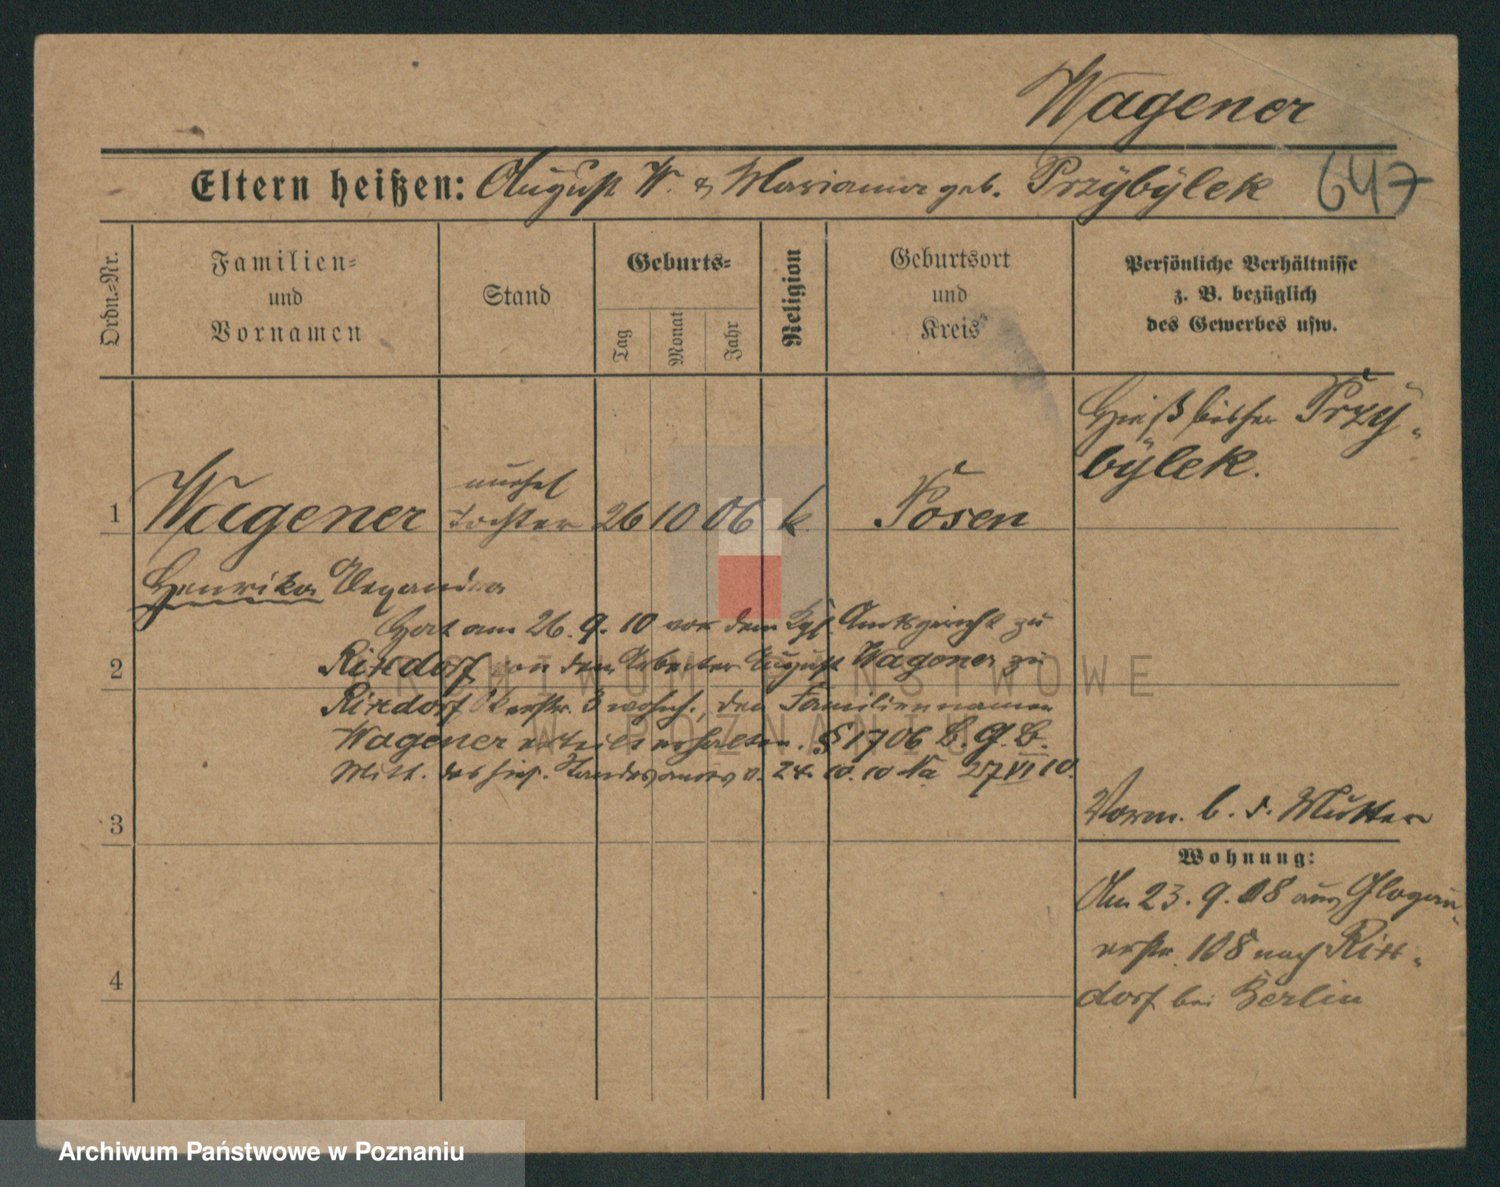 Wagener
Eltern heißen: August W. & Marianna geb. Przybylek 647
Ordn.-Nr.
Familien- und Vornamen
Stand
Geburts-
Tag
Monat
Jahr
Religion
Geburtsort und Kreis
Persönliche Verhältnisse
z. B. bezüglich
des Gewerbes usw.
Hieß bisher Przy-
bylek.
1 Wagener unehel Tochter 26 10 06 k Posen
Henrika
Hat am 26. 9. 10 vor dem Kgl. Amtsgericht zu
2 Rixdorf von dem Arbeiter August Wagener zu
Rixdorf 8 wohnh., den Familiennamen
Wagener erteilt erhalten. § 1706 B. G. B.
Mitt. des hies. Standesamtes v. 24. 10. 10 Na 27 VI 10.
3
Vorm. b. d. Mutter
Wohnung:
Am 23. 9. 08 aus Glogau-
erstr. 108 nach Rix-
4
dorf bei Berlin
ARCHIWUM PAŃSTWOWE
W POZNANIU
Archiwum Państwowe w Poznaniu